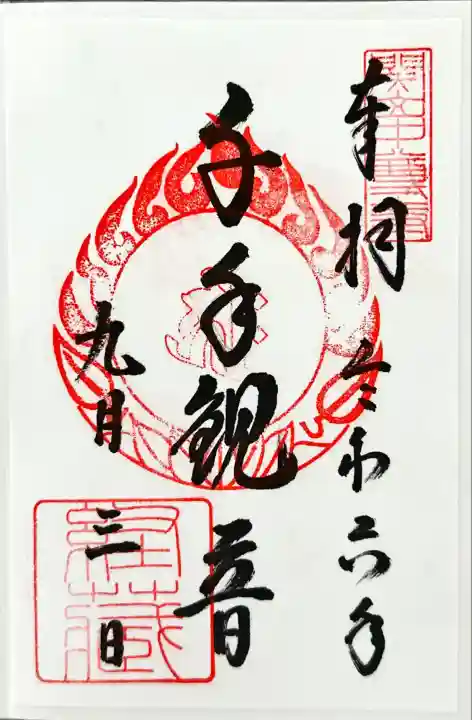 奉拝 令和六年
千手観音
九月三日